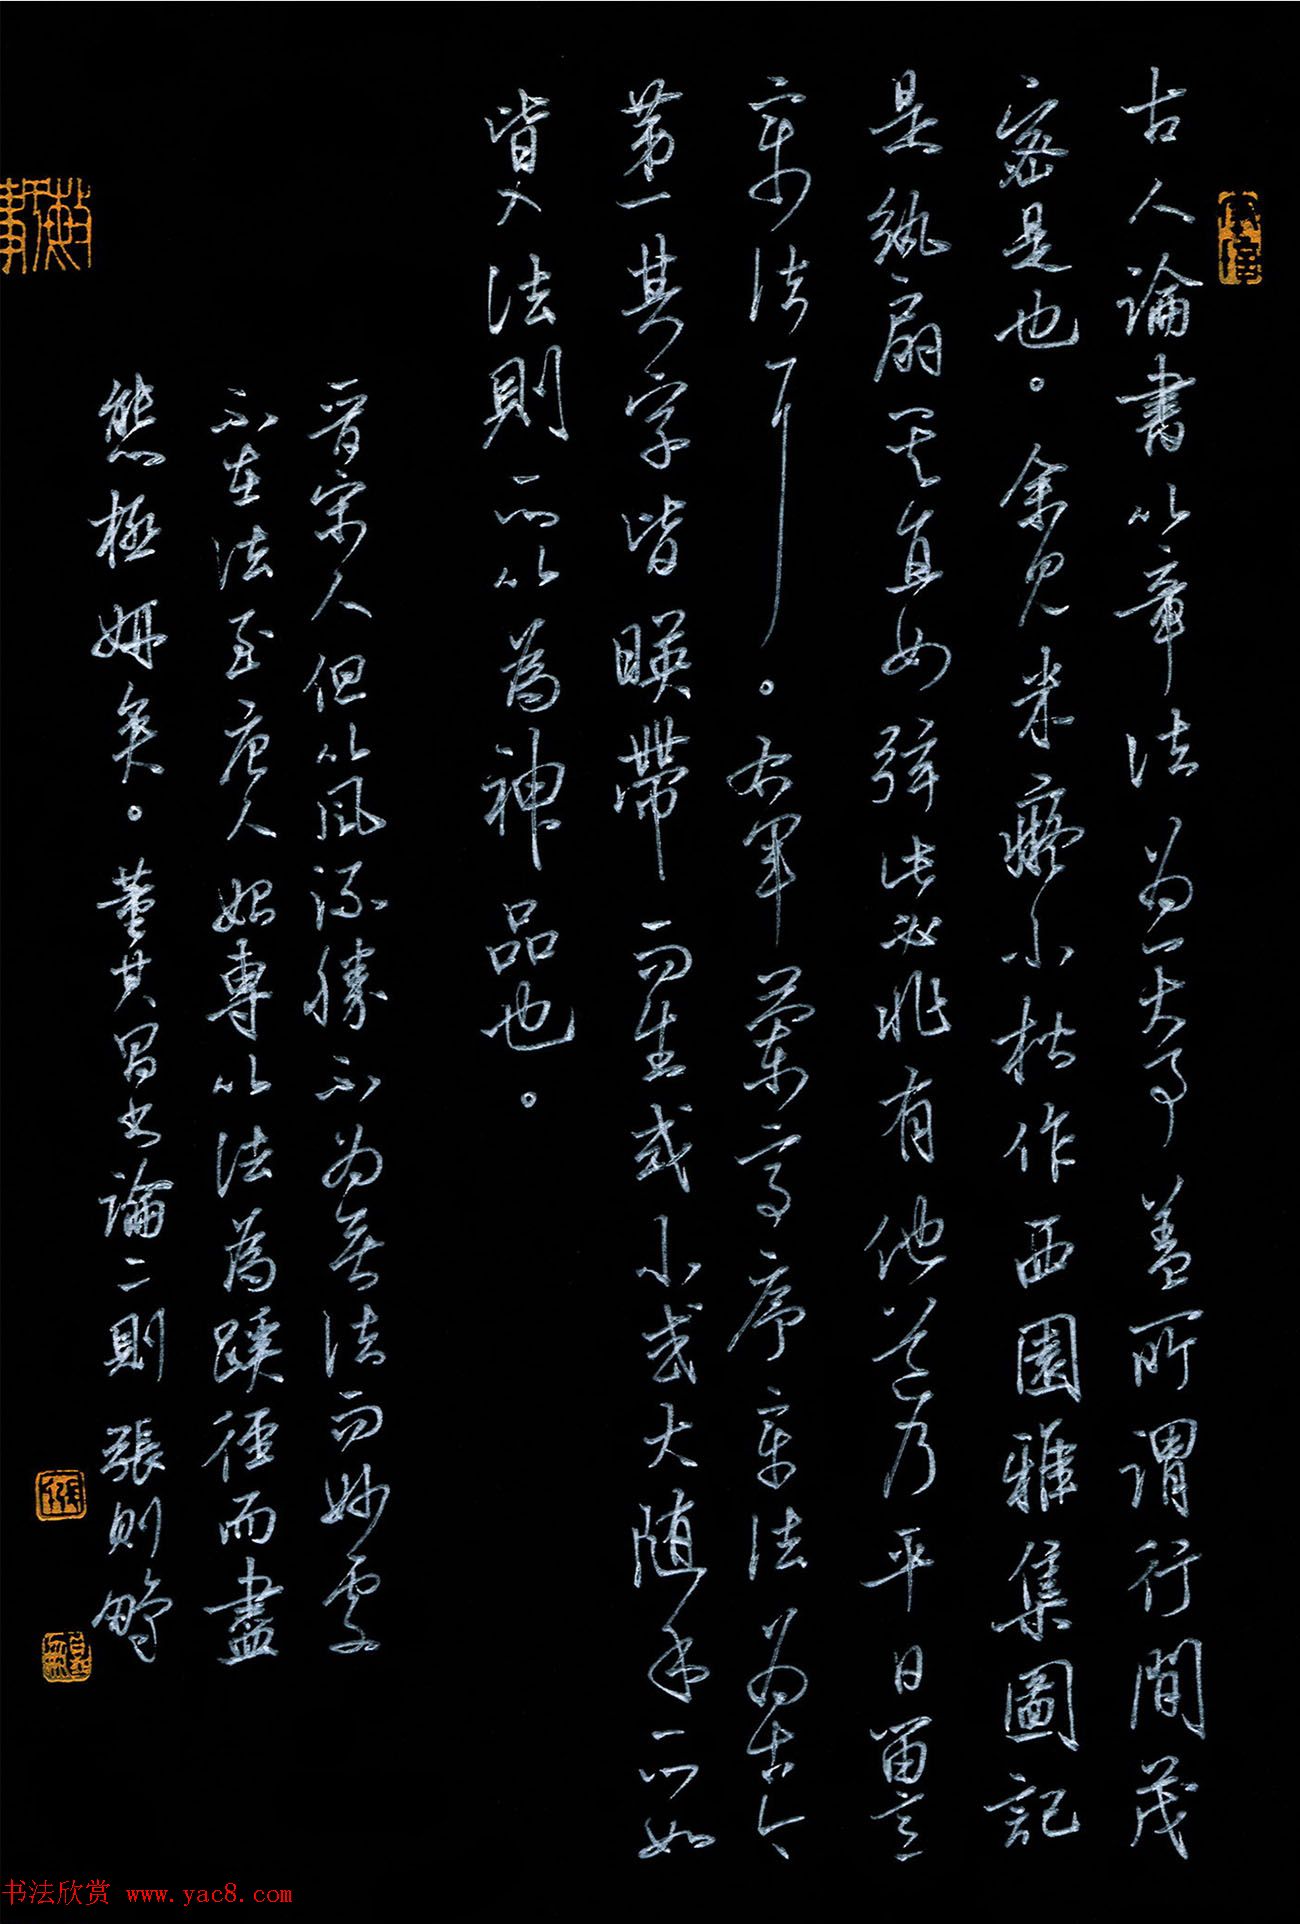 古人論書以章法為一大事蓋所謂行間茂
密是也。余見米癡小楷作西園雅集圖記
是紈扇其直如弦此必非有他道乃平日留意
章法耳。右軍蘭亭序章法為古今
第一其字皆暎帶而生或小或大随手所如
皆入法則所以為神品也。
晉宋人但以風流勝不為無法而妙處
不在法至唐人始專以法為蹊徑而盡
態極妍矣。董其昌書論二則 張則
书法欣赏 www.yac8.com